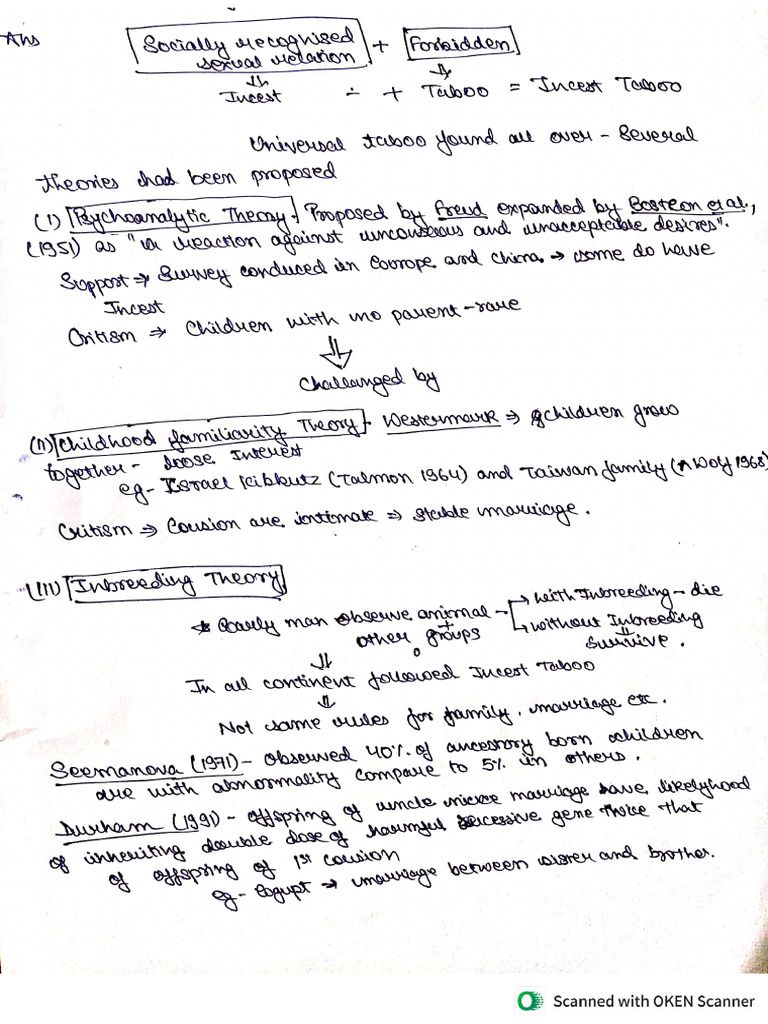 Ans Socially recognised + Forbidden
sexual relation
⇓ ⇓
Incest ∴ + Taboo = Incest Taboo
Universal taboo found all over - Several
theories had been proposed
(I) Psychoanalytic Theory - Proposed by Freud expanded by et al.,
(1951) as "a reaction against and desires".
Support ⇒ Survey conduced in Eourope and China → some do have
Incest
Critism ⇒ Children with no parent - rare
⇓
Challanged by
(II) Childhood familiarity Theory - Westermark ⇒ children grow
together - loose Interest
eg - Israel (Talmon 1964) and Taiwan family 1968)
Critism ⇒ Cousion are intimate ⇒ stable marriage.
(III) Inbreeding Theory
Early man observe animal - → with Inbreeding - die
+ other groups → without Inbreeding
survive.
⇓
In all continent followed Incest Taboo
⇓
Not same rules for family, marriage etc.
Seemanova (1971) - observed 40% of born children
are with abnormality compare to 5% in others.
Durham (1991) - offspring of uncle marriage have likelyhood
of inheriting double dose of harmful gene twice that
of offspring of 1st cousion
eg - → marriage between sister and brother.
Scanned with OKEN Scanner